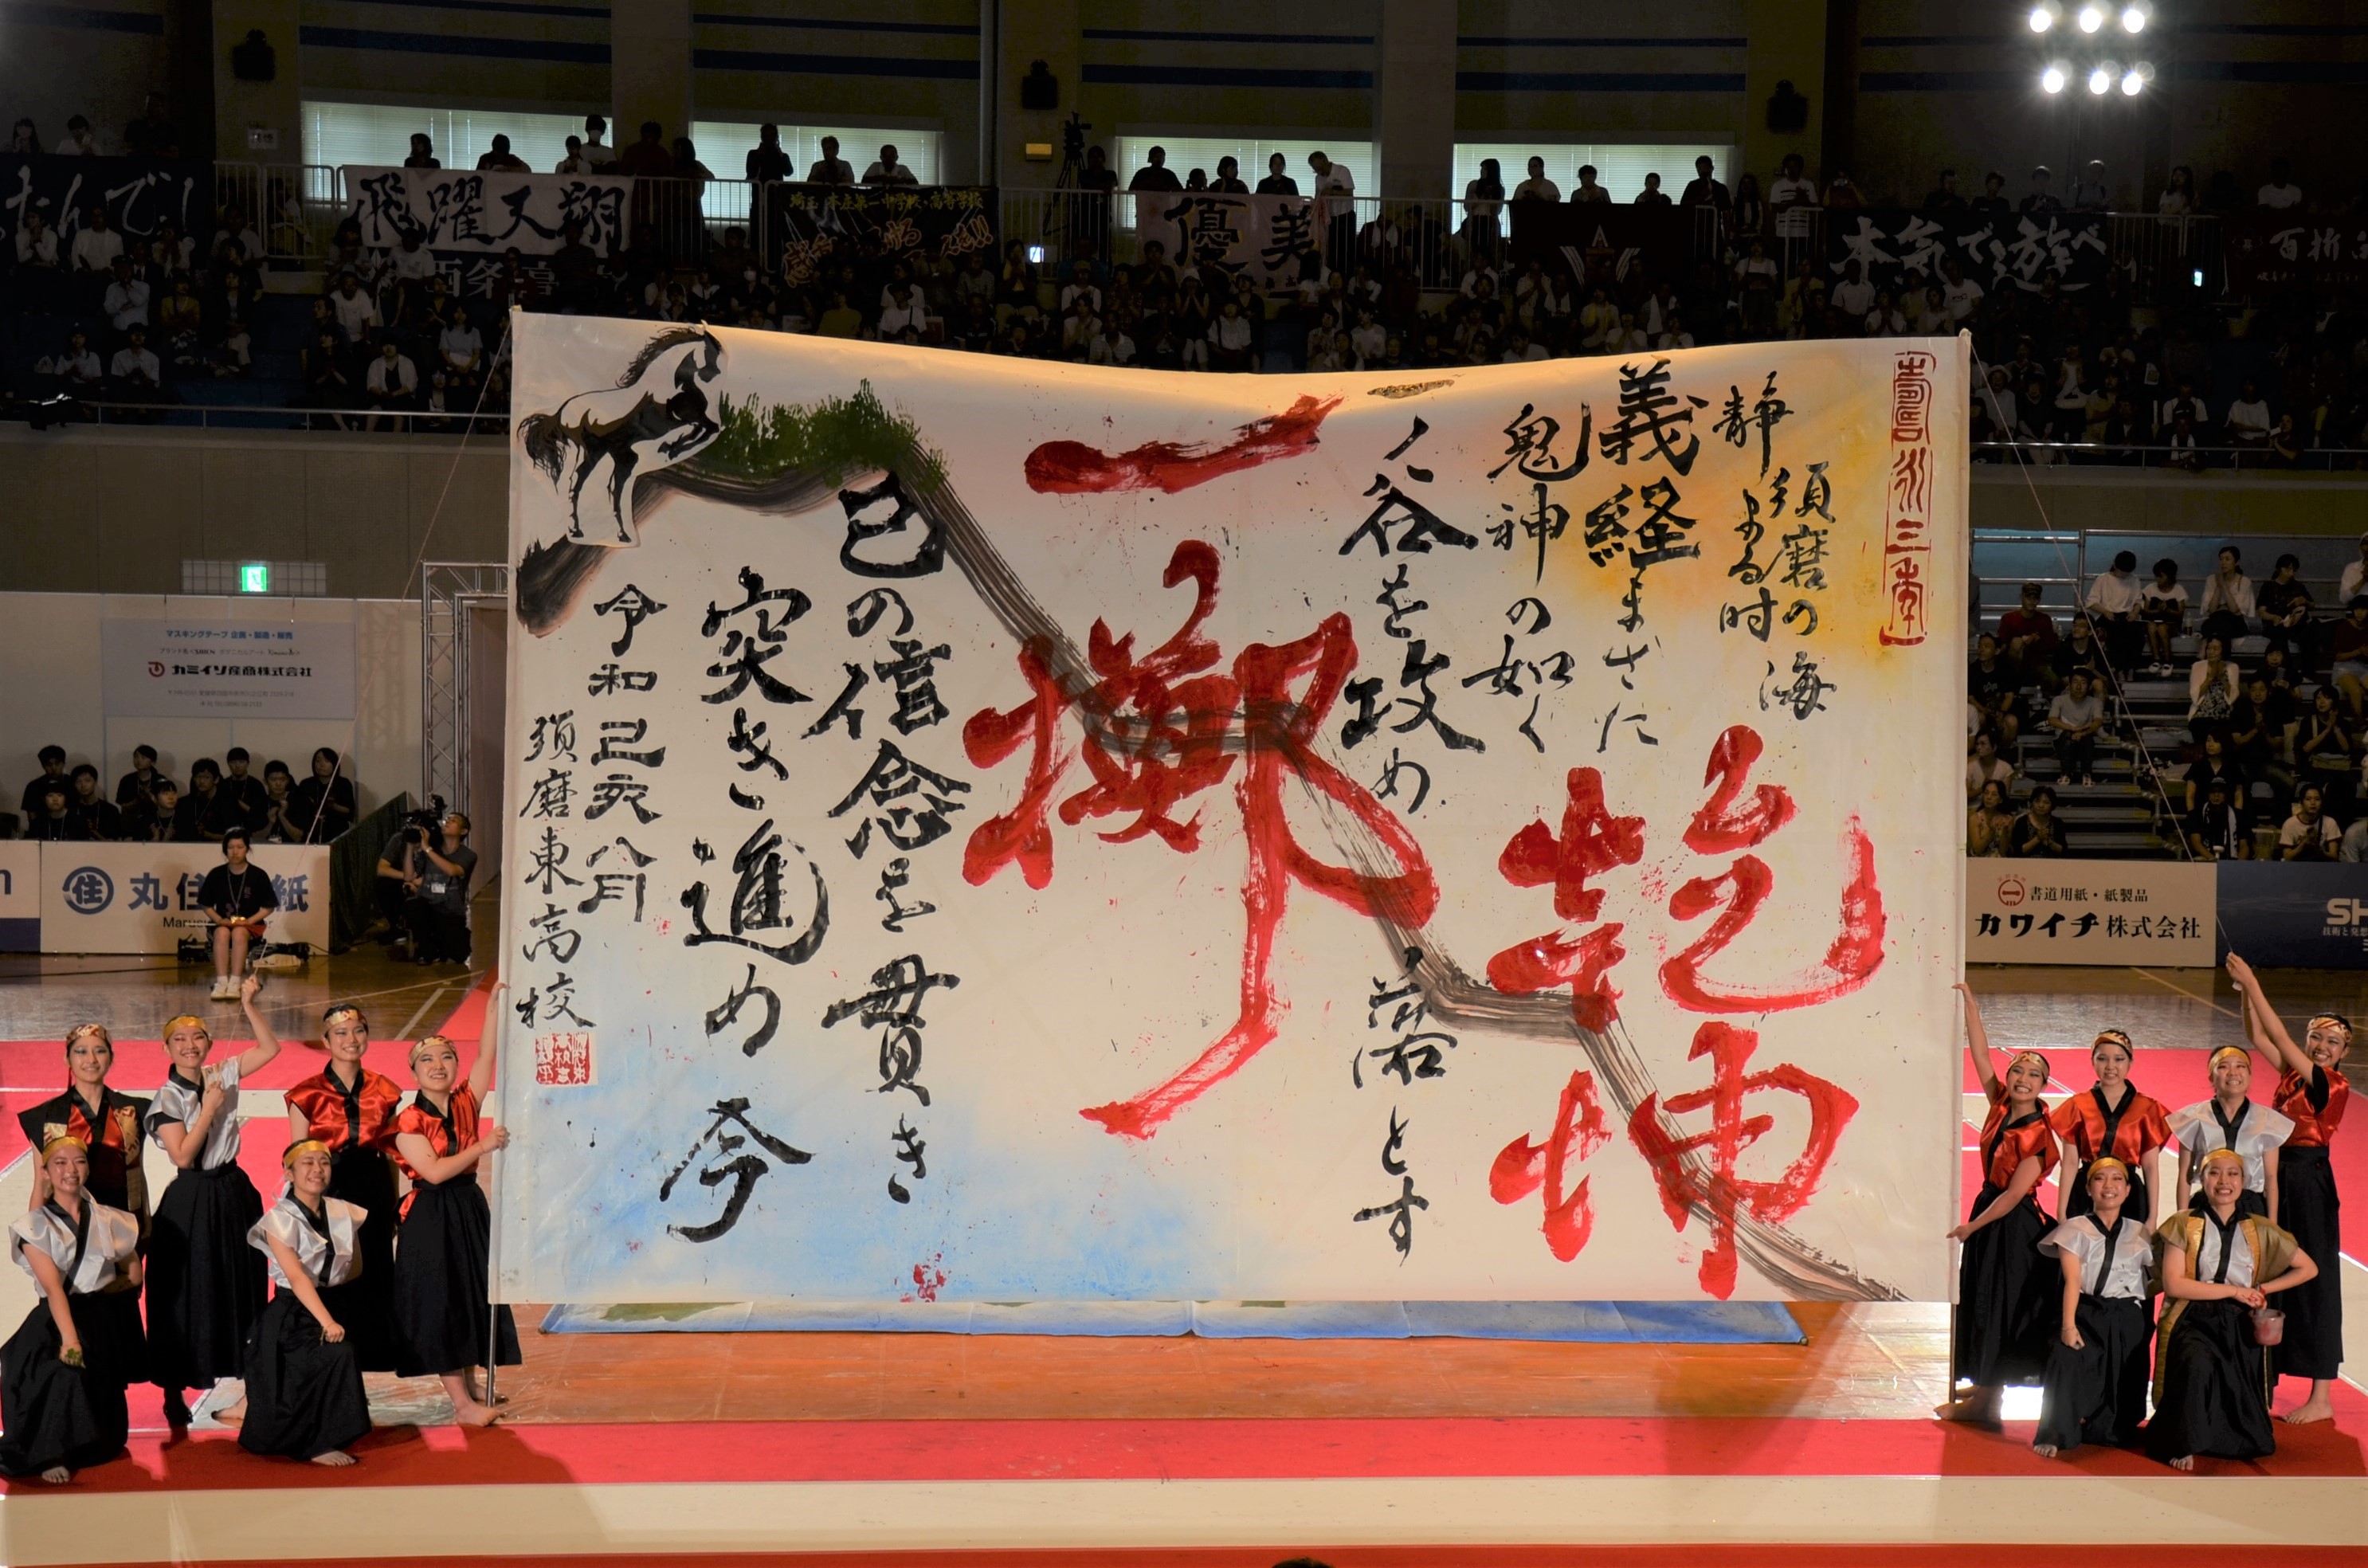 寿永三年
須磨の海
静まる時
義経まさに
鬼神の如く
一ノ谷を攻め落とす
乾坤
一擲
己の信念を貫き
突き進め今
令和己亥八月
須磨東高校
たんで!
飛躍天翔
西条
優美
本気で遊べ
百折
マスキングテープ 企画・製造・販売
カミイソ産商株式会社
丸住 紙
書道用紙・紙製品
カワイチ株式会社